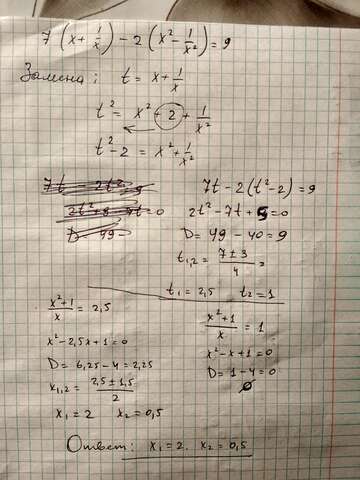 7 (x + 1/x) - 2 (x² - 1/x²) = 9
Замена: t = x + 1/x
t² = x² + 2 + 1/x²
t² - 2 = x² + 1/x²
7t - 2(t² - 2) = 9
2t² - 7t + 5 = 0
D = 49 - 40 = 9
t₁,₂ = (7 ± 3)/4 =
t₁ = 2,5 t₂ = 1
(x² + 1)/x = 2,5
x² - 2,5x + 1 = 0
D = 6,25 - 4 = 2,25
x₁,₂ = (2,5 ± 1,5)/2
x₁ = 2 x₂ = 0,5
(x² + 1)/x = 1
x² - x + 1 = 0
D = 1 - 4 = 0
∅
Ответ: x₁ = 2. x₂ = 0,5